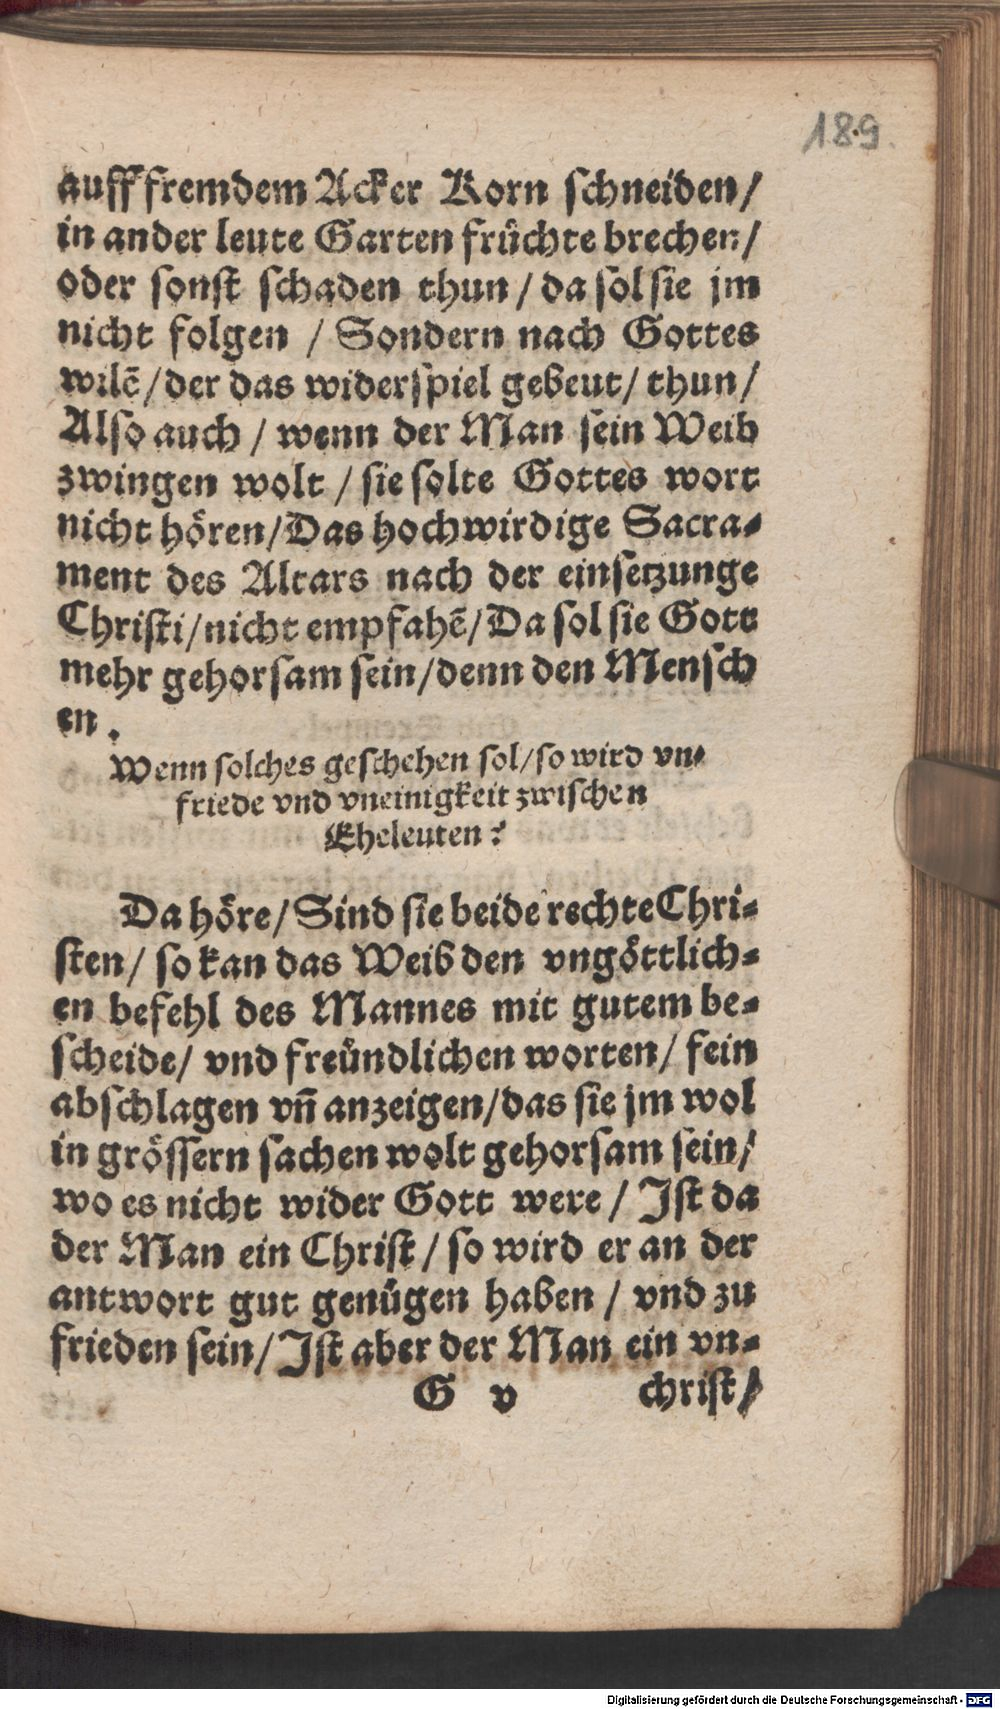 189.
auff fremdem Acker Korn schneiden/
in ander leute Garten früchte brechen/
oder sonst schaden thun / da sol sie jm
nicht folgen / Sondern nach Gottes
wilē/ der das widerspiel gebeut/ thun/
Also auch / wenn der Man sein Weib
zwingen wolt / sie solte Gottes wort
nicht hören/ Das hochwirdige Sacra-
ment des Altars nach der einsetzunge
Christi/ nicht empfahē/ Da sol sie Gott
mehr gehorsam sein/ denn den Mensch
en .
Wenn solches geschehen sol/ so wird vn-
friede vnd vneinigkeit zwischen
Eheleuten ?
Da höre/ Sind sie beide rechte Chri-
sten/ so kan das Weib den vngöttlich-
en befehl des Mannes mit gutem be-
scheide/ vnd freündlichen worten/ fein
abschlagen vn̄ anzeigen/ das sie jm wol
in grössern sachen wolt gehorsam sein/
wo es nicht wider Gott were / Ist da
der Man ein Christ / so wird er an der
antwort gut genügen haben / vnd zu
frieden sein/ Ist aber der Man ein vn-
G v christ/
Digitalisierung gefördert durch die Deutsche Forschungsgemeinschaft - DFG